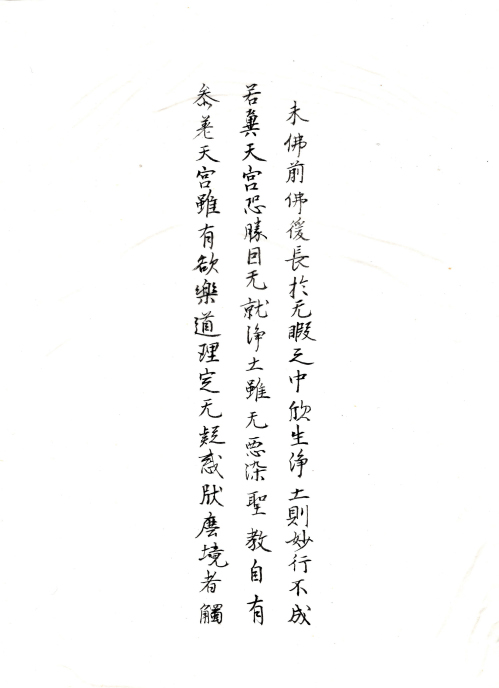 未佛前佛後長於无暇之中欣生淨土則妙行不成
若冀天宮恐勝因无就淨土雖无惡染聖教自有
叅差天宮雖有欲樂道理定无疑惑猒塵境者觸